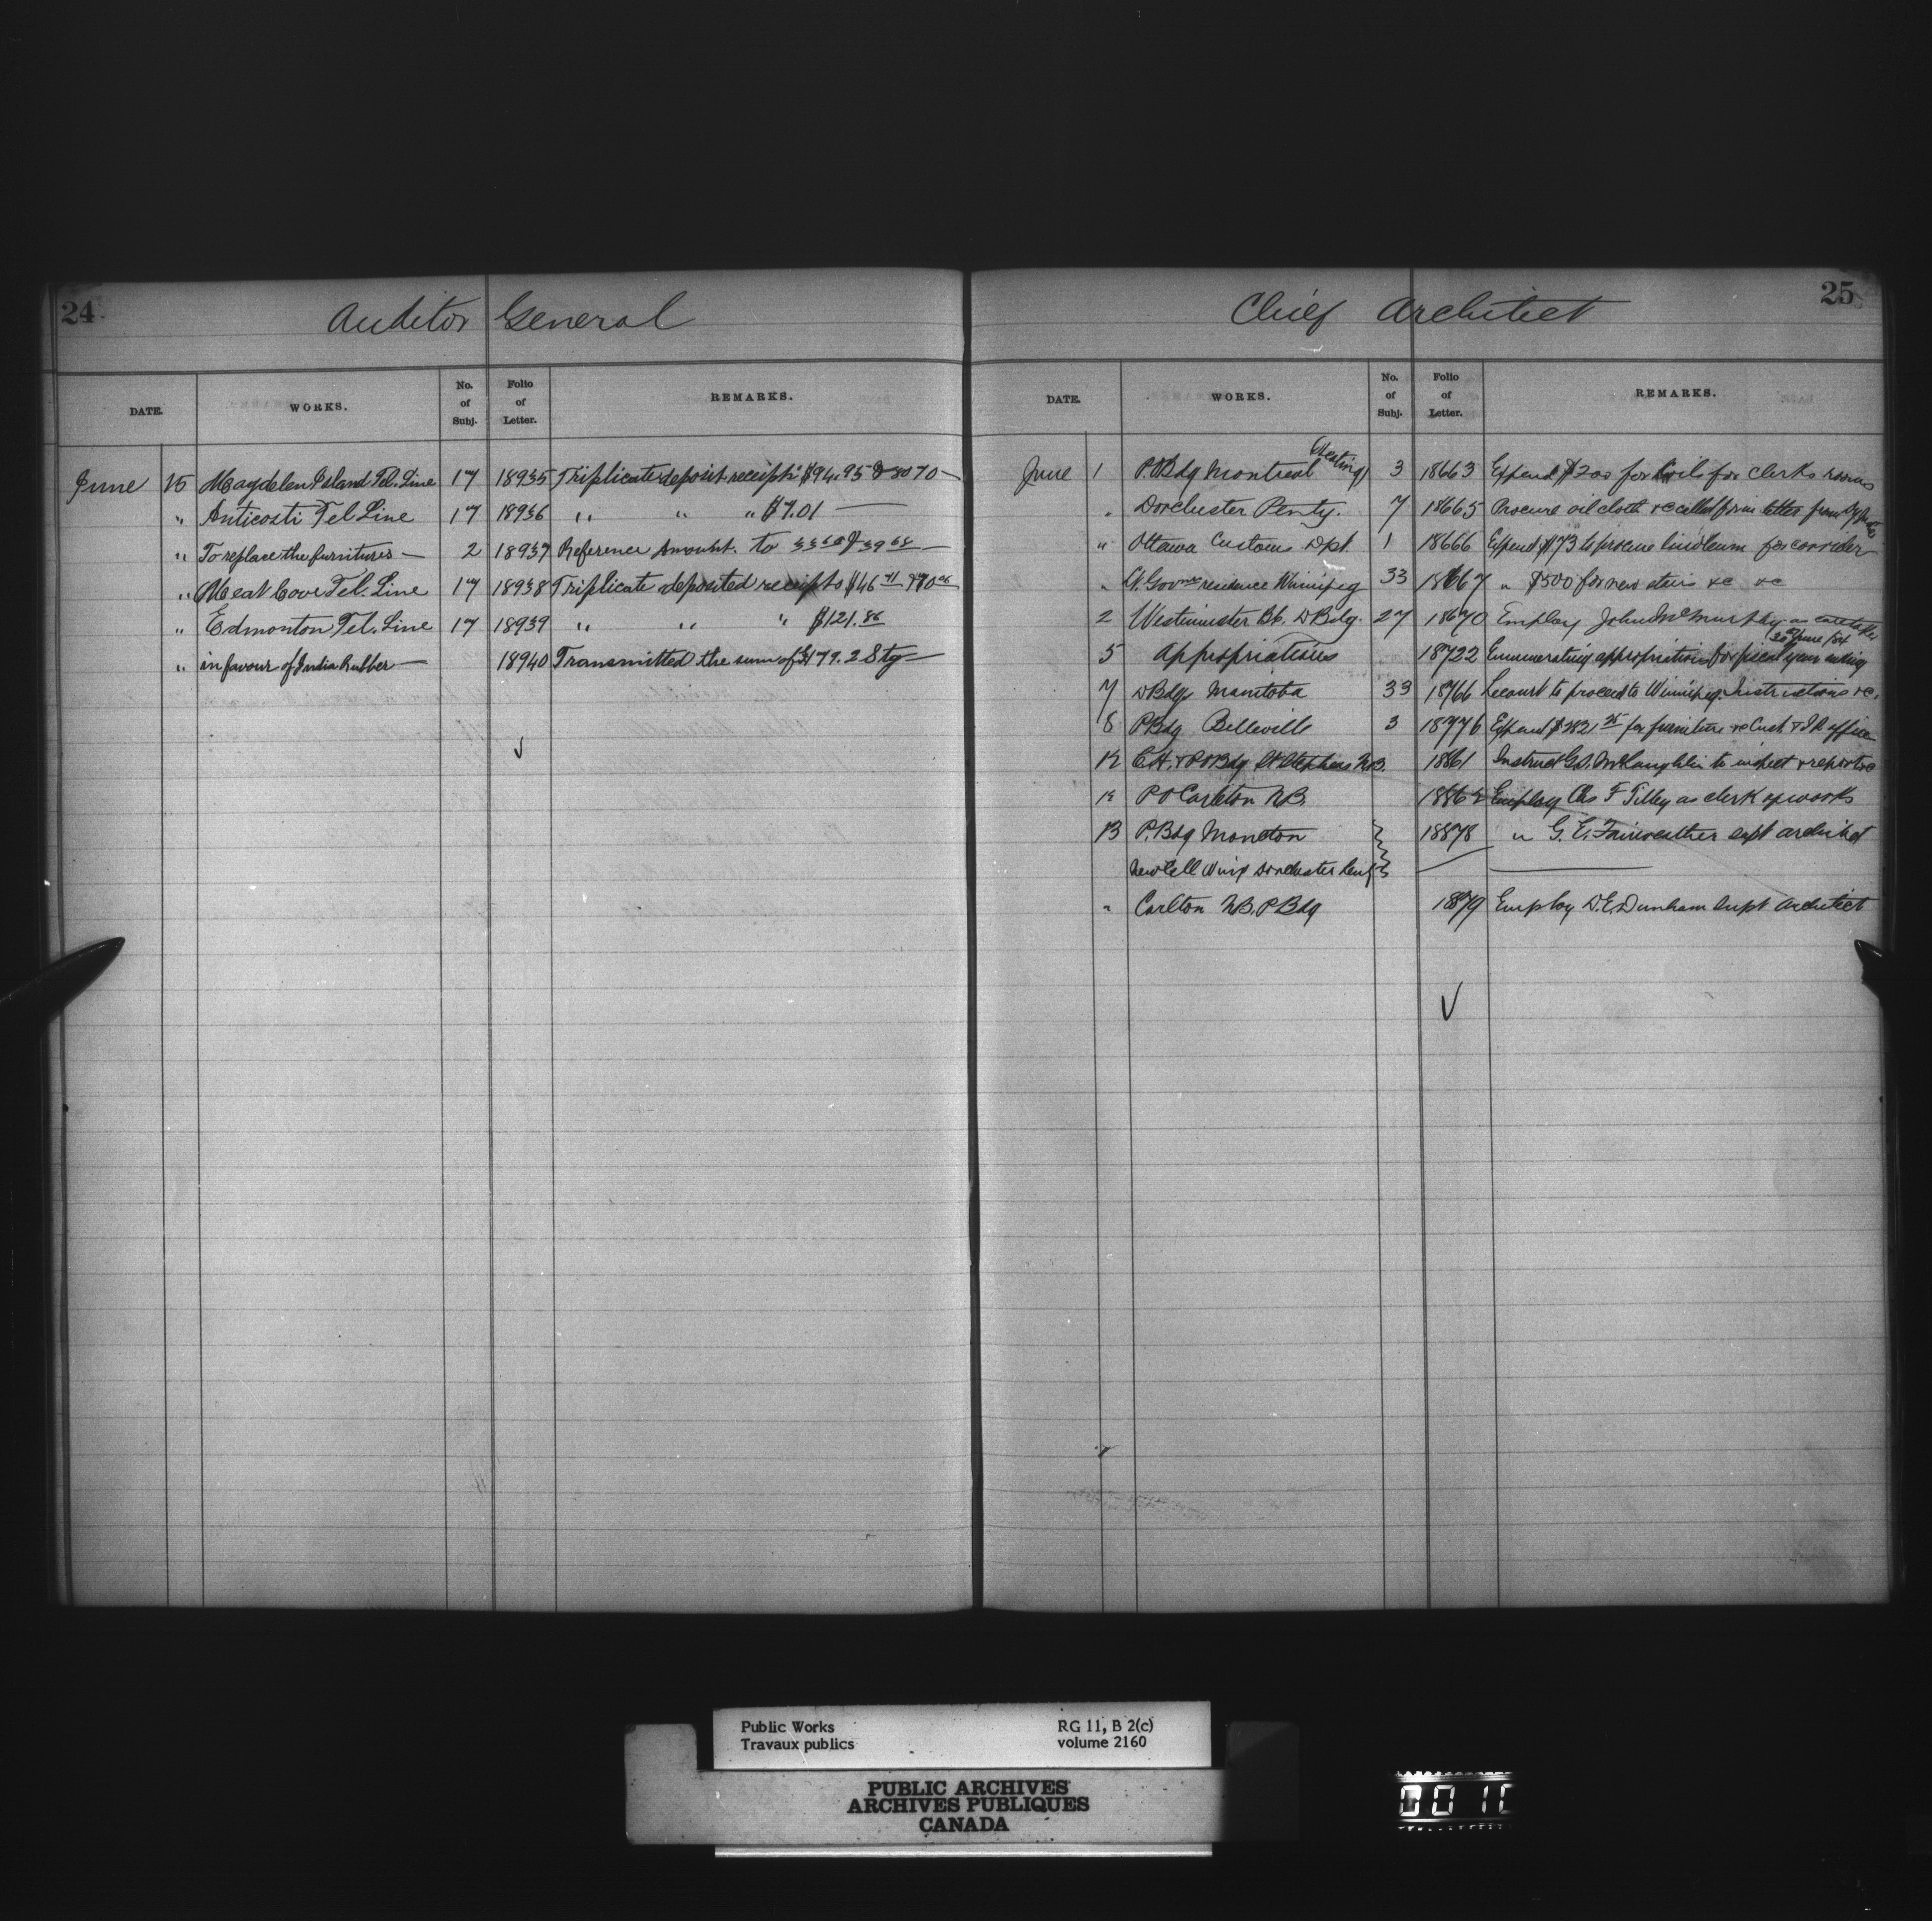 24
Auditor General
DATE. WORKS. No. of Subj. Folio of Letter. REMARKS.
June 15 Magdelen Island Tel. Line 17 18935 Triplicate deposit receipts $94.95 & 80 70 —
" Anticosti Tel Line 17 18936 " " " $7.01 —
" To replace the furnitures — 2 18937 Reference Amount. to
" Meat Cove Tel. Line 17 18938 Triplicate deposited receipts $46
" Edmonton Tel. Line 17 18939 " " " $121.86
" in favour of India Rubber — 18940 Transmitted the sum of 179. 2 Stg —
25
Chief Architect
DATE. WORKS. No. of Subj. Folio of Letter. REMARKS.
June 1 P.O Bdg Montreal (Heating) 3 18663 Expend $200 for for clerks rooms
" Dorchester Penty. 7 18665 Procure oil cloth &c called for in letter from
" Ottawa Customs Dpt. 1 18666 Expend $73 to procure linoleum for corridor
" residence Winnipeg 33 18667 " $500 for new &c &c
2 Westminster B.C. D Bdg. 27 18670 Employ John McMurphy as caretaker
5 Appropriations 18722 Enumerating appropriations for fiscal year ending 30th June /84
7 D Bdgs Manitoba 33 18766 Lecourt to proceed to Winnipeg. Instructions &c.
8 P Bdg Belleville 3 18776 Expend for furniture &c Cust & I R office
12 C.H. & P O Bdg St Stephens N.B. 18861 Instruct G.D. McLaughlin to inspect & report &c
12 P O Carleton N.B. 18862 Employ Chs F Tilley as clerk of works
13 P. Bdg Moncton 18878 " G. E. Fairweather supt architect
New Cell Wing Dorchester Penty
" Carlton N.B. P Bdg 1879 Employ D. E. Dunham supt Architect
Public Works RG 11, B 2(c)
Travaux publics volume 2160
PUBLIC ARCHIVES
ARCHIVES PUBLIQUES
CANADA
0010